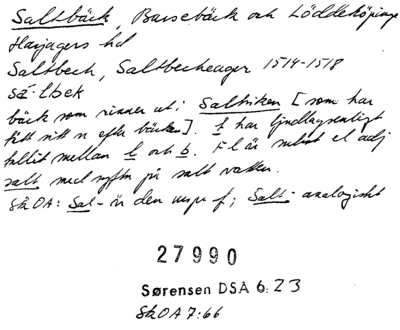 Saltbäck, Barsebäck och Löddeköpinge
Harjagers hd
Saltbech, Saltbecheager 1514-1518
sá·lbek
bäck som rinner ut i Saltviken [som har
fått sitt n efter bäcken]. t har ljudlagsenligt
fallit mellan l och b. Fl är subst el adj
salt med syftn på salt vatten.
SkOA: Sal- är den urspr f; Salt- analogiskt
27990
Sørensen DSA 6:23
SkOA 7:66